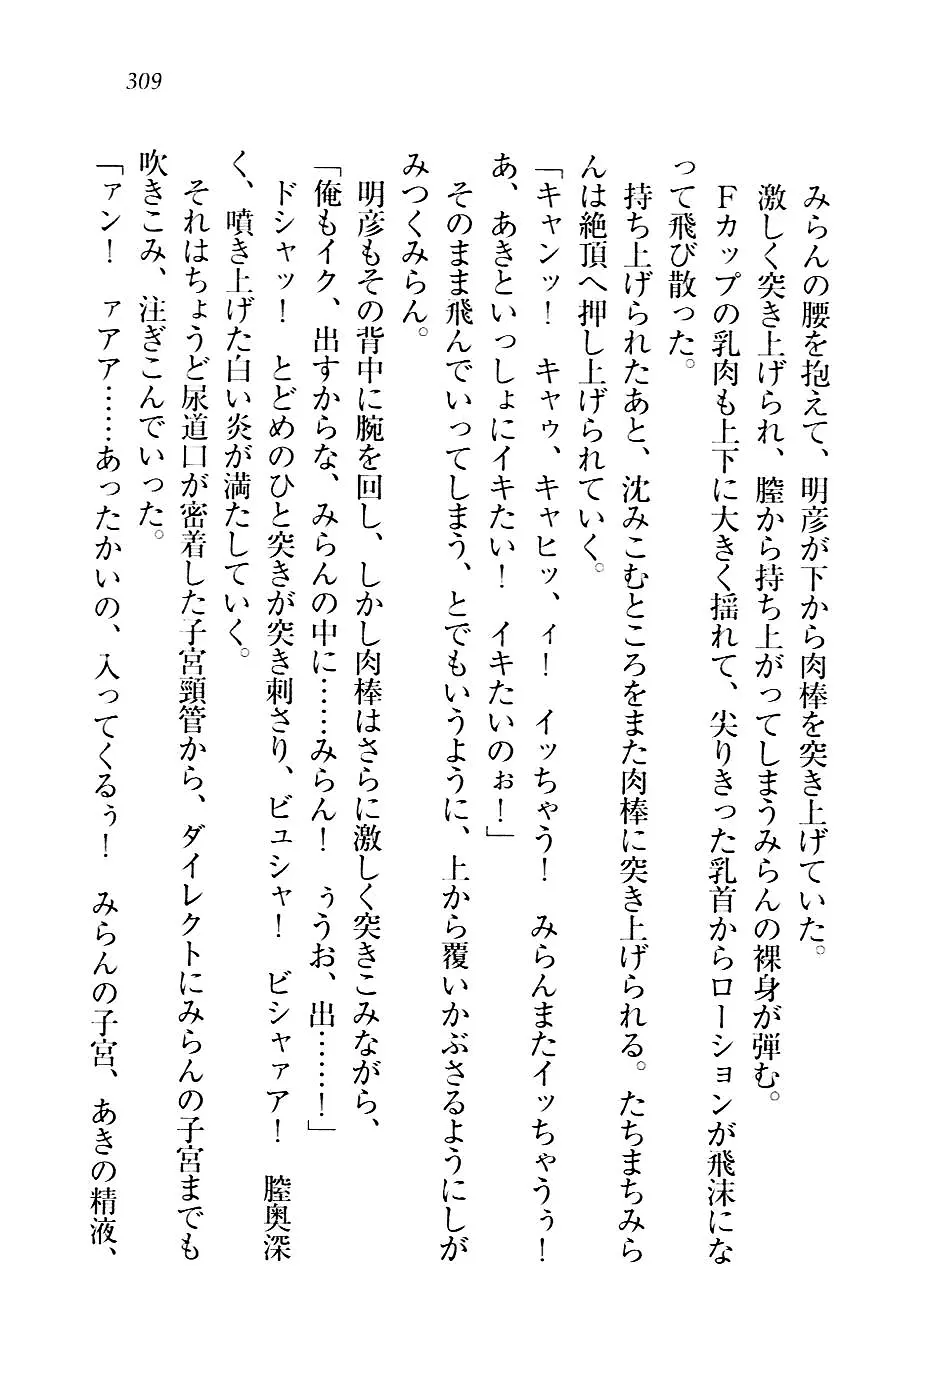 309
みらんの腰を抱えて、明彦が下から肉棒を突き上げていた。
激しく突き上げられ、膣から持ち上がってしまうみらんの裸身が弾む。
Ｆカップの乳肉も上下に大きく揺れて、尖りきった乳首からローションが飛沫にな
って飛び散った。
持ち上げられたあと、沈みこむところをまた肉棒に突き上げられる。たちまちみら
んは絶頂へ押し上げられていく。
「キャンッ！　キャゥ、キャヒッ、ィ！　イッちゃう！　みらんまたイッちゃうぅ！
あ、あきといっしょにイキたい！　イキたいのぉ！」
そのまま飛んでいってしまう、とでもいうように、上から覆いかぶさるようにしが
みつくみらん。
明彦もその背中に腕を回し、しかし肉棒はさらに激しく突きこみながら、
「俺もイク、出すからな、みらんの中に……みらん！　ぅうお、出……！」
ドシャッ！　とどめのひと突きが突き刺さり、ビュシャ！　ビシャァア！　膣奥深
く、噴き上げた白い炎が満たしていく。
それはちょうど尿道口が密着した子宮頸管から、ダイレクトにみらんの子宮までも
吹きこみ、注ぎこんでいった。
「アン！　ァアア……あったかいの、入ってくるぅ！　みらんの子宮、あきの精液、